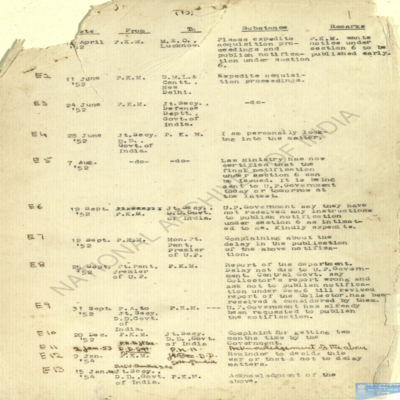 (15)
Date From To Substance Remarks
April P.K.M. M.E.O., Please expedite P.K.M. wants
'52 Lucknow. acquisition pro- notice under
ceedings and section 6 to be
publish notifica- published early.
tion under section
6.
E2 11 June P.K.M. D.M.L.& Expedite acquisi-
'52 Cantt., tion proceedings.
New
Delhi.
E3 24 June P.K.M. Jt.Secy.
'52 Defence
Deptt.,
Govt.of
India.
E4 28 June Jt.Secy. P.K.M. I am personally look-
'52 D.D., ing into the matter.
Govt.of
India.
E5 7 Aug. -do- -do- Law Ministry has now
'52 certified that the
final notification
under section 6 can
be issued. It is being
sent to U.P.Government
today or tomorrow at
the latest.
E6 19 Sept. Jt.Secy. U.P.Government say they have
'52 P.K.M. D.D.Govt. not received any instructions
of India. to publish notification
under section 6 as intimat-
ed to me. Kindly expedite.
E7 19 Sept. P.K.M. Hon.Pt. Complaining about the
'52 Pant, delay in the publication
Premier of the above notifica-
of U.P. tion.
E8 Sept. Pant, P.K.M. Report of the department.
'52 Premier Delay not due to U.P.Govern-
of U.P. ment. Central Govt. say
Collector's report wrong and
ask not to publish notifica-
tion under Sec.6 till revised
report of the Collector has been
received & considered by them.
E9 Sept. P.K.M. U.P.Government has already
'52 Jt.Secy. been requested to publish
D.D.Govt the notification.
of India.
E10 20 Dec. P.K.M. Jt.Secy. Complaint for getting two
'52 D.D.Govt months time by the
of India Government.
E11 P.K.M. Acknowledgement of the above
E12 9 Jan. P.K.M. Reminder to decide this
'54 war that & do not to delay
matters.
E13 15 Jan. Jt.Secy. Acknowledgment of the
'54 D.D.Govt P.K.M. above.
of India.
NATIONAL ARCHIVES OF INDIA